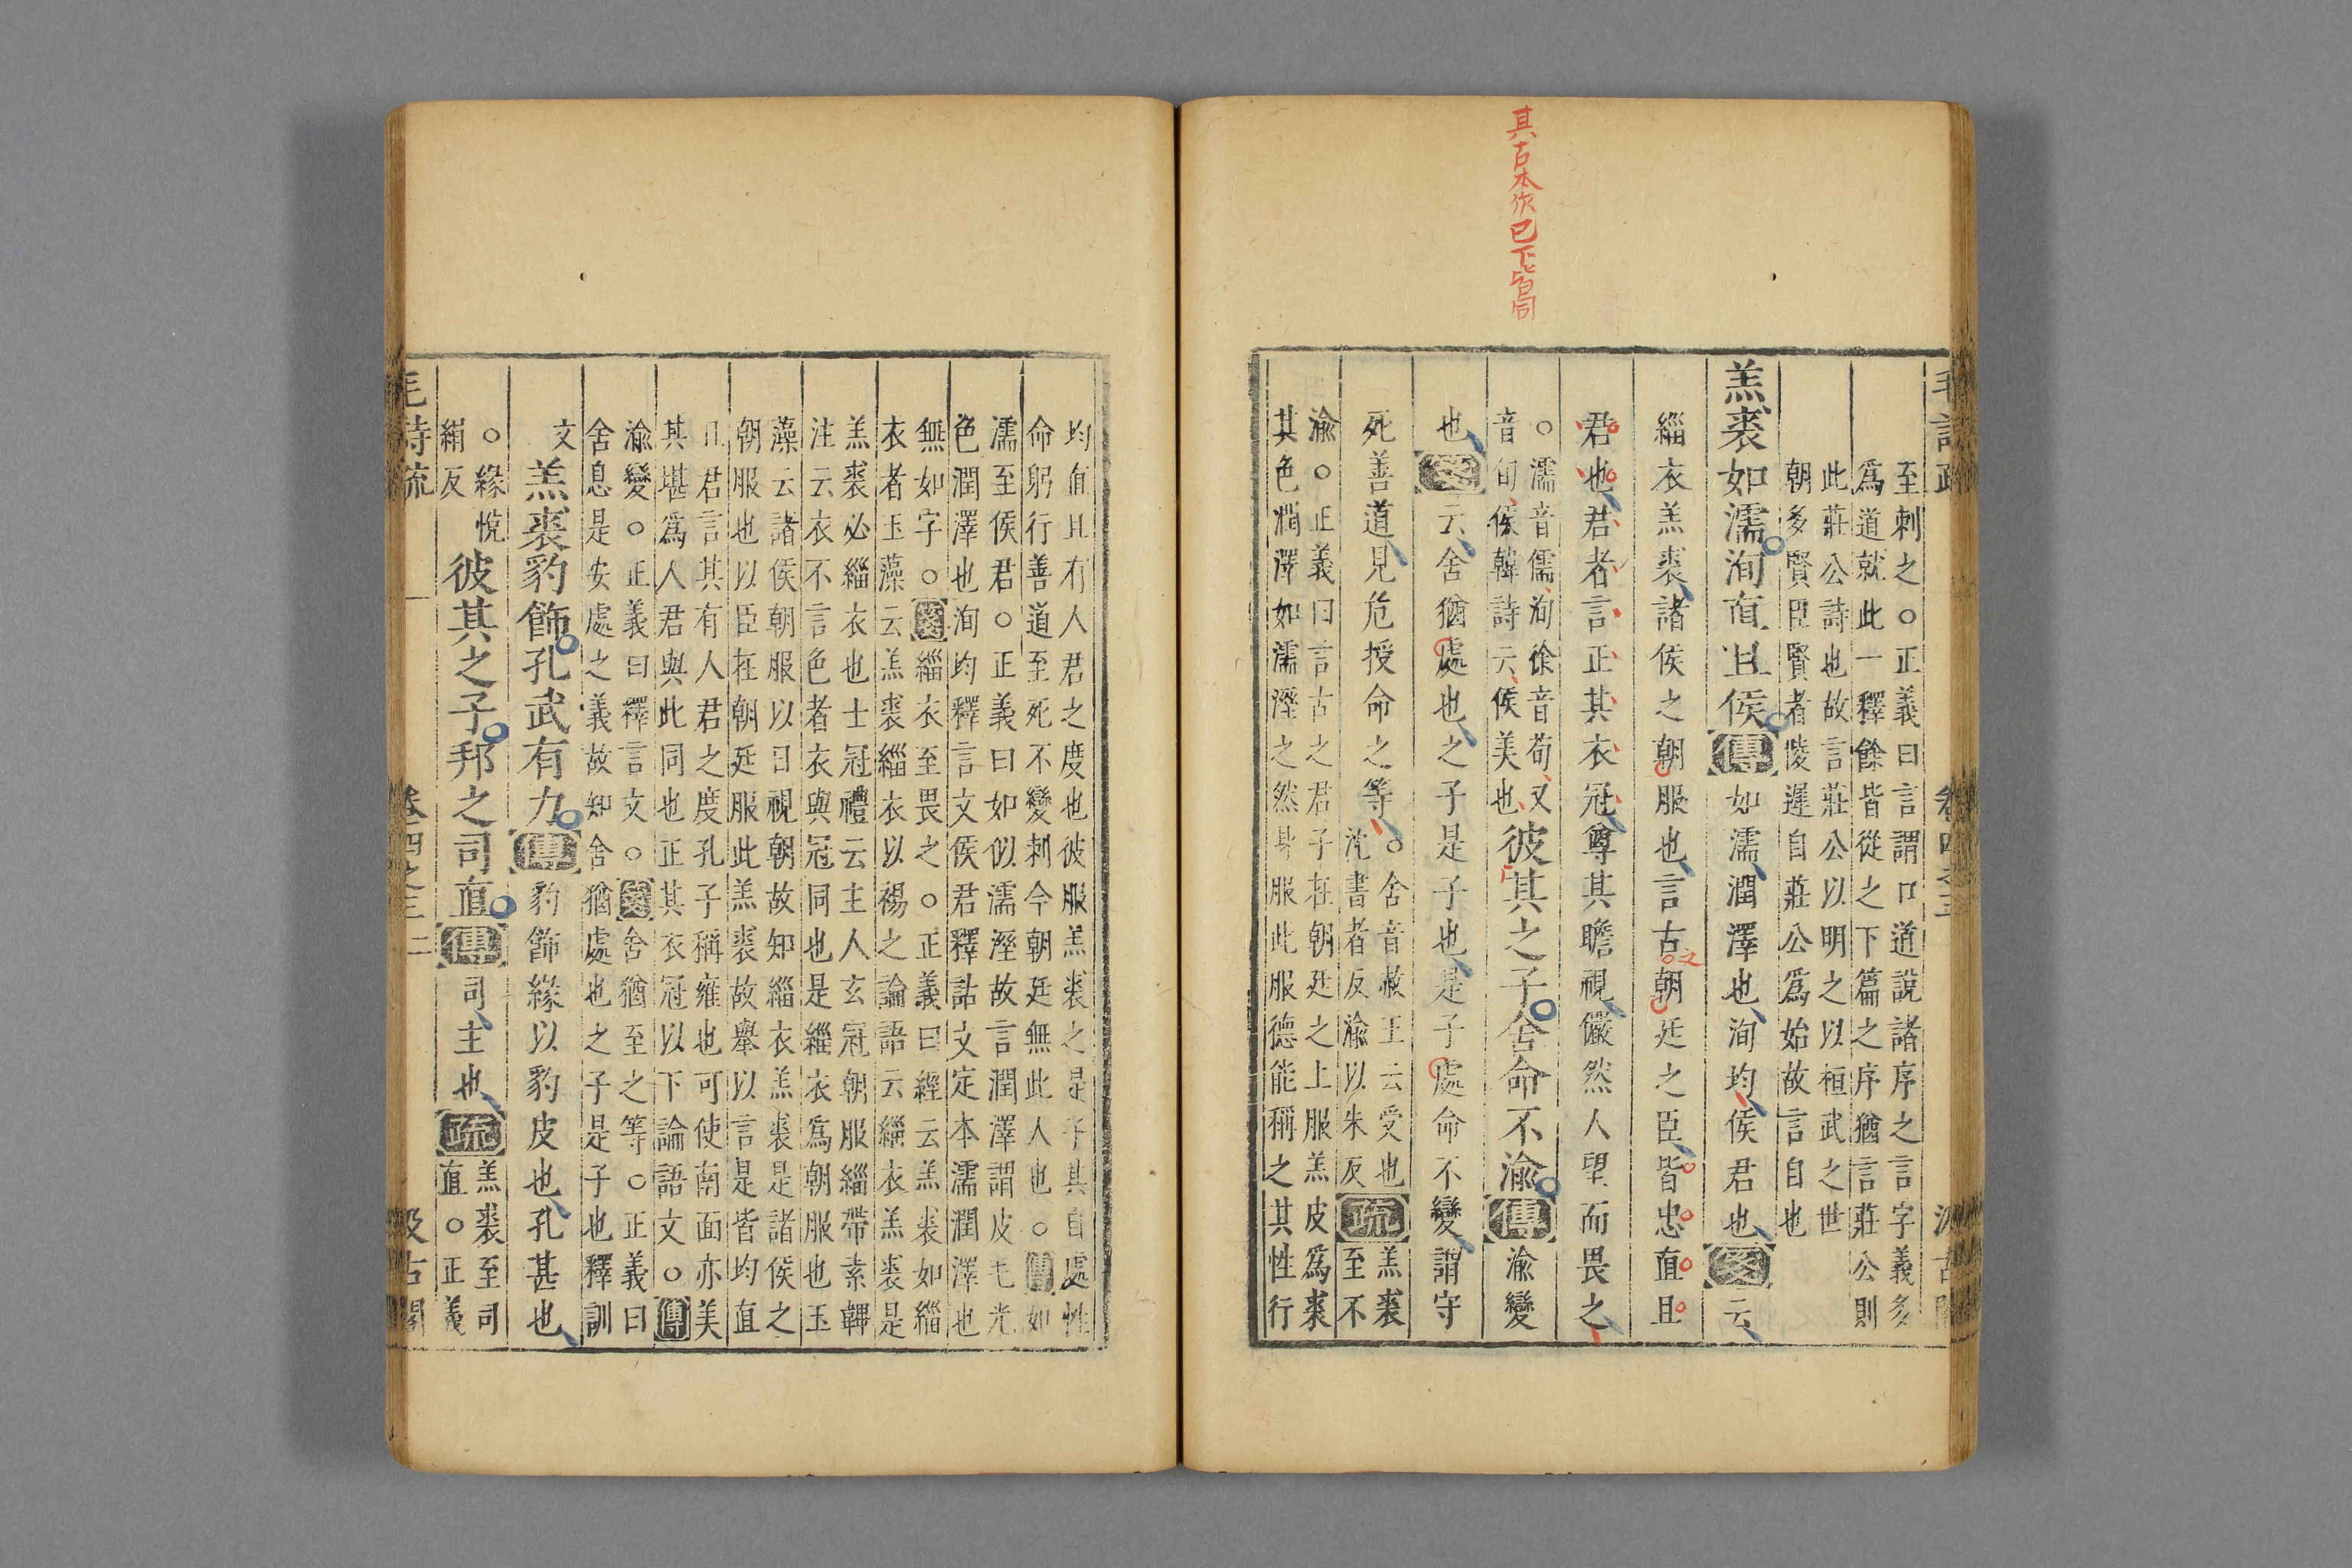 其古本作已下皆同
至刺之○正義曰言謂口道說諸序之言字義多
爲道就此一釋餘皆從之下篇之序猶言莊公則
此莊公詩也故言莊公以明之以桓武之世
朝多賢臣賢者陵遲自莊公爲始故言自也
羔裘如濡洵直且侯傳如濡潤澤也洵均侯君也箋云
緇衣羔裘諸侯之朝服也言古之朝廷之臣皆忠直且
君也君者言正其衣冠尊其瞻視儼然人望而畏之
○濡音儒洵徐音荀又
音旬侯韓詩云侯美也
彼其之子舍命不渝傳渝變
也箋云舍猶處也之子是子也是子處命不變謂守
死善道見危授命之等
○舍音赦王云受也
沈書者反渝以朱反
疏
羔裘
至不
渝○正義曰言古之君子在朝廷之上服羔皮爲裘
其色潤澤如濡溼之然身服此服德能稱之其性行
均直且有人君之度也彼服羔裘之是子其自處性
命躬行善道至死不變刺今朝廷無此人也○傳如
濡至侯君○正義曰如似濡溼故言潤澤謂皮毛光
色潤澤也洵均釋言文侯君釋詁文定本濡潤澤也
無如字○箋緇衣至畏之○正義曰經云羔裘如緇
衣者玉藻云羔裘緇衣以裼之論語云緇衣羔裘是
羔裘必緇衣也士冠禮云主人玄冠朝服緇帶素韠
注云衣不言色者衣與冠同也是緇衣爲朝服也玉
藻云諸侯朝服以日視朝故知緇衣羔裘是諸侯之
朝服也以臣在朝廷服此羔裘故舉以言是皆均直
且君言其有人君之度孔子稱雍也可使南面亦美
其堪爲人君與此同也正其衣冠以下論語文○傳
渝變○正義曰釋言文○箋舍猶至之等○正義曰
舍息是安處之義故知舍猶處也之子是子也釋訓
文
羔裘豹飾孔武有力傳豹飾緣以豹皮也孔甚也
○緣悅
絹反
彼其之子邦之司直傳司主也疏
羔裘至司
直○正義
毛詩疏 卷四之三 二 汲古閣